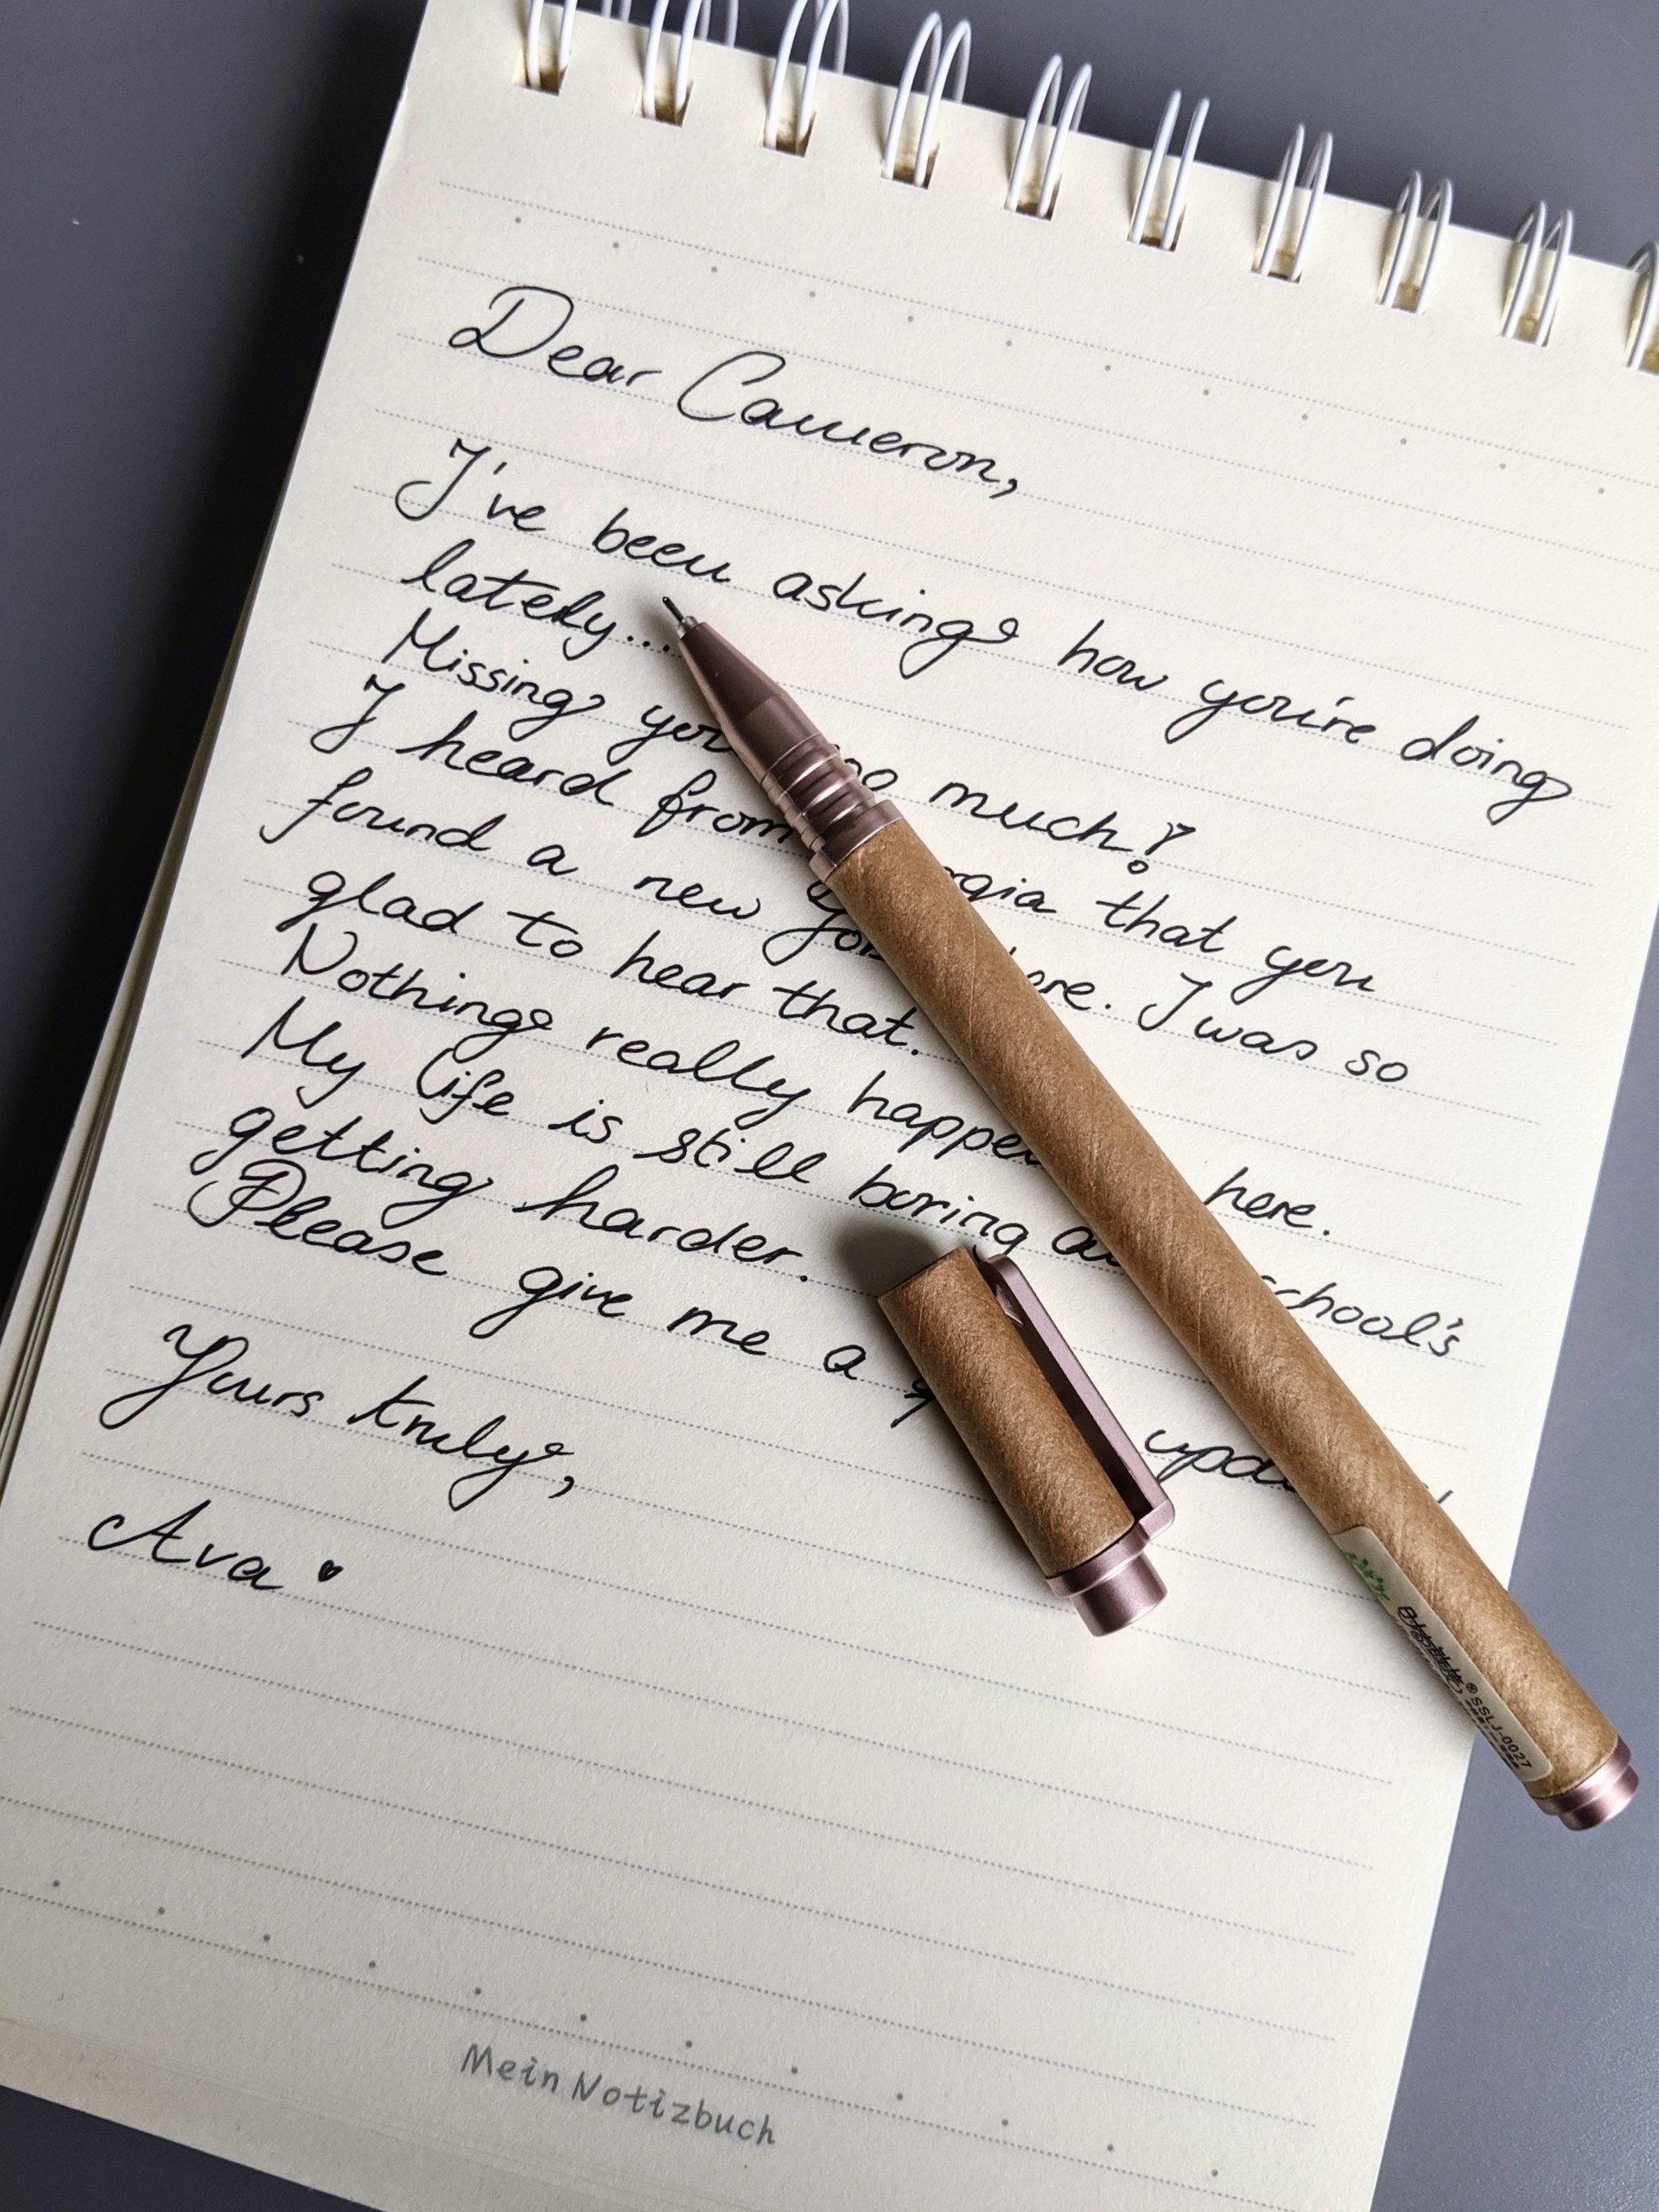 Dear Cameron,
I've been asking how you're doing
lately...
Missing you so much!
I heard from that you
found a new there. I was so
glad to hear that.
Nothing really happened here.
My life is still boring and school's
getting harder.
Please give me a
Yours truly,
Ava
SSLJ-0027
Mein Notizbuch